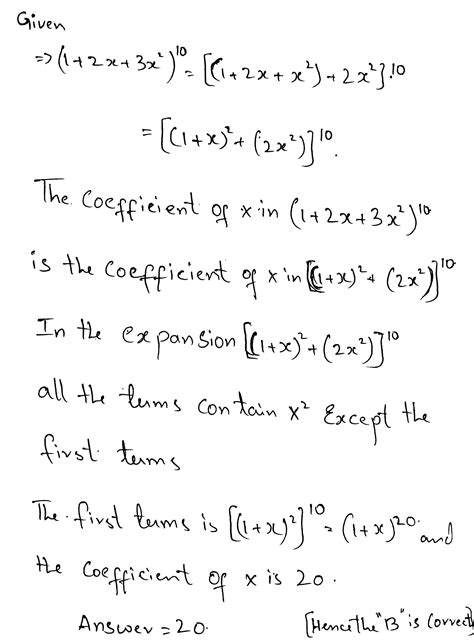 Given
⇒ (1+2x+3x²)¹⁰ = [(1+2x+x²)+2x²]¹⁰
= [(1+x)²+(2x²)]¹⁰.
The Coefficient of x in (1+2x+3x²)¹⁰
is the Coefficient of x in [(1+x)²+(2x²)]¹⁰
In the expansion [(1+x)²+(2x²)]¹⁰
all the terms contain x² Except the
first terms
The first terms is [(1+x)²]¹⁰ = (1+x)²⁰. and
the Coefficient of x is 20.
Answer = 20. [Hence the "B" is Correct]